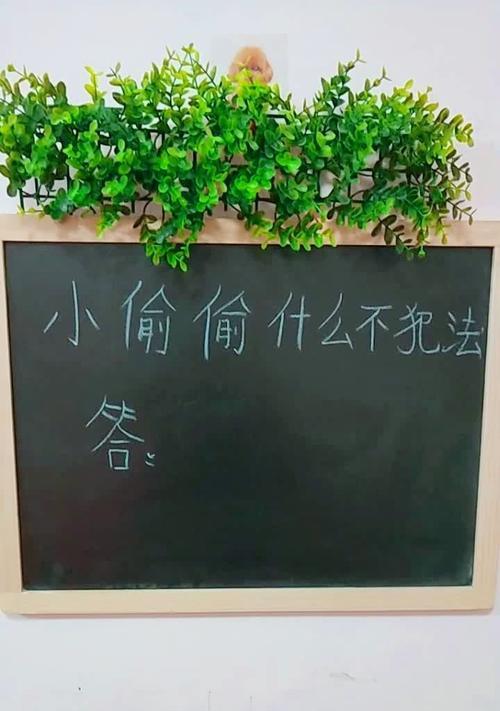 小偷偷什么不犯法
答: